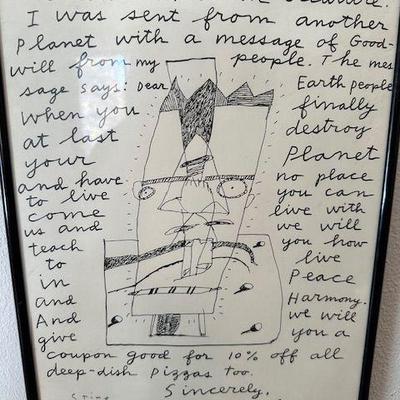 I was sent from another
Planet with a message of Good-
will from my people. The mes
sage says: Dear Earth people
when you finally
at last destroy
your Planet
and have no place
to live you can
come live with
us and we will
teach you how
to live
in Peace
and Harmony.
And we will
give you a
coupon good for 10% off all
deep-dish pizzas too.
Sincerely,